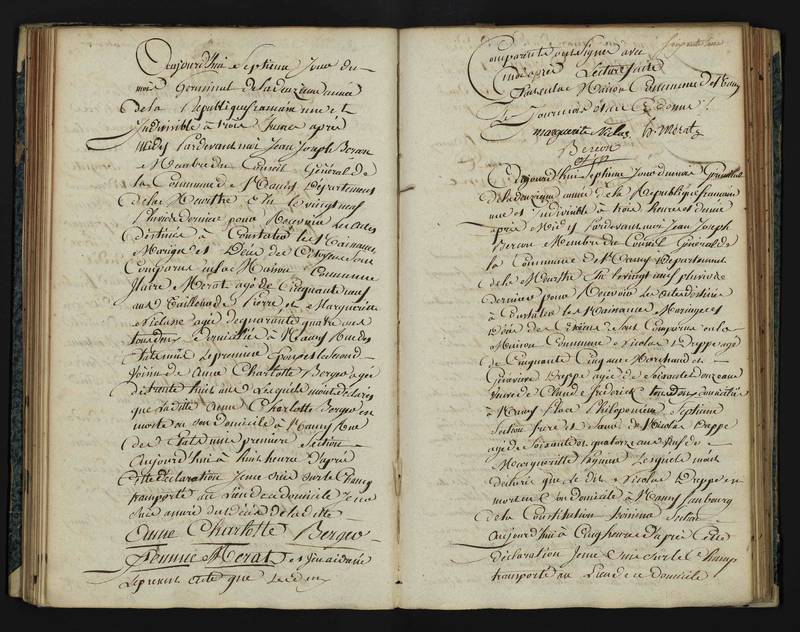 Aujourd'hui Septieme Jour du
mois Germinal de la deuxieme année
de la Republique francaise une et
Indivisible à trois heures après
Midi Pardevant moi Jean Joseph Beron
Membre du Conseil Général de
la Commune de Nancy Département
de la Meurthe Elu le vingt neuf
Pluviose dernier pour Recevoir Les actes
destinés à Constater les Naissances
Mariages et Décès des Citoyens Sont
Comparus en la Maison Commune
Merat agé de Cinquante neuf
ans Tailleur de Pierre et Marguerite
Nicolas agée de quarante quatre ans
tous deux domiciliés à Nancy Rue des
Le premier Epoux Le Second
de Anne Charlotte Bergeo agée
de trante huit ans Lesquels m'ont déclarés
que Laditte Anne Charlotte Bergeo en
morte en Son domicile à Nancy Rue
des première Section
Aujourd'hui à huit heures d'après
Cette déclaration Jeme Suis Sur le Champ
transporté au Lieu de ce domicile Je me
Suis assuré du décès de la ditte
Anne Charlotte Bergeo
Femme Merat et J'en ai dressé
Le présent acte que
Comparants ont Signé avec
moi après Lecture faite
Fait en la Maison Commune de Nancy
Les Jour mois et an Ci dessus
marguerite Nicolas h. Merat
Beron
Aujourd'hui Septieme Jour du mois Germinal
de la deuxieme année de la Republique francaise
une et Indivisible à trois heures et demie
après Midi Pardevant moi Jean Joseph
Beron Membre du Conseil Général de
la Commune de Nancy Département
de la Meurthe Elu le vingt neuf pluviose
dernier pour Recevoir Les actes destinés
à Constater les Naissances Mariages et
Décès des Citoyens Sont Comparus en la
Maison Commune Nicolas Dreppe agé
de Cinquante Cinq ans Marchand et
Genevieve Dreppe agée de Soixante douze ans
veuve de Claude frederick tous deux domiciliés
à Nancy Place Septieme
Section frere et Soeur de Nicolas Dreppe
agé de Soixante quatorze ans
Marguerite Lesquels m'ont
declarés que Le dit Nicolas Dreppe en
mort en Son domicile à Nancy faubourg
de la Constitution Section
aujourd'hui à Cinq heures d'après Cette
déclaration Jeme Suis Sur le Champ
transporté au Lieu de ce domicile